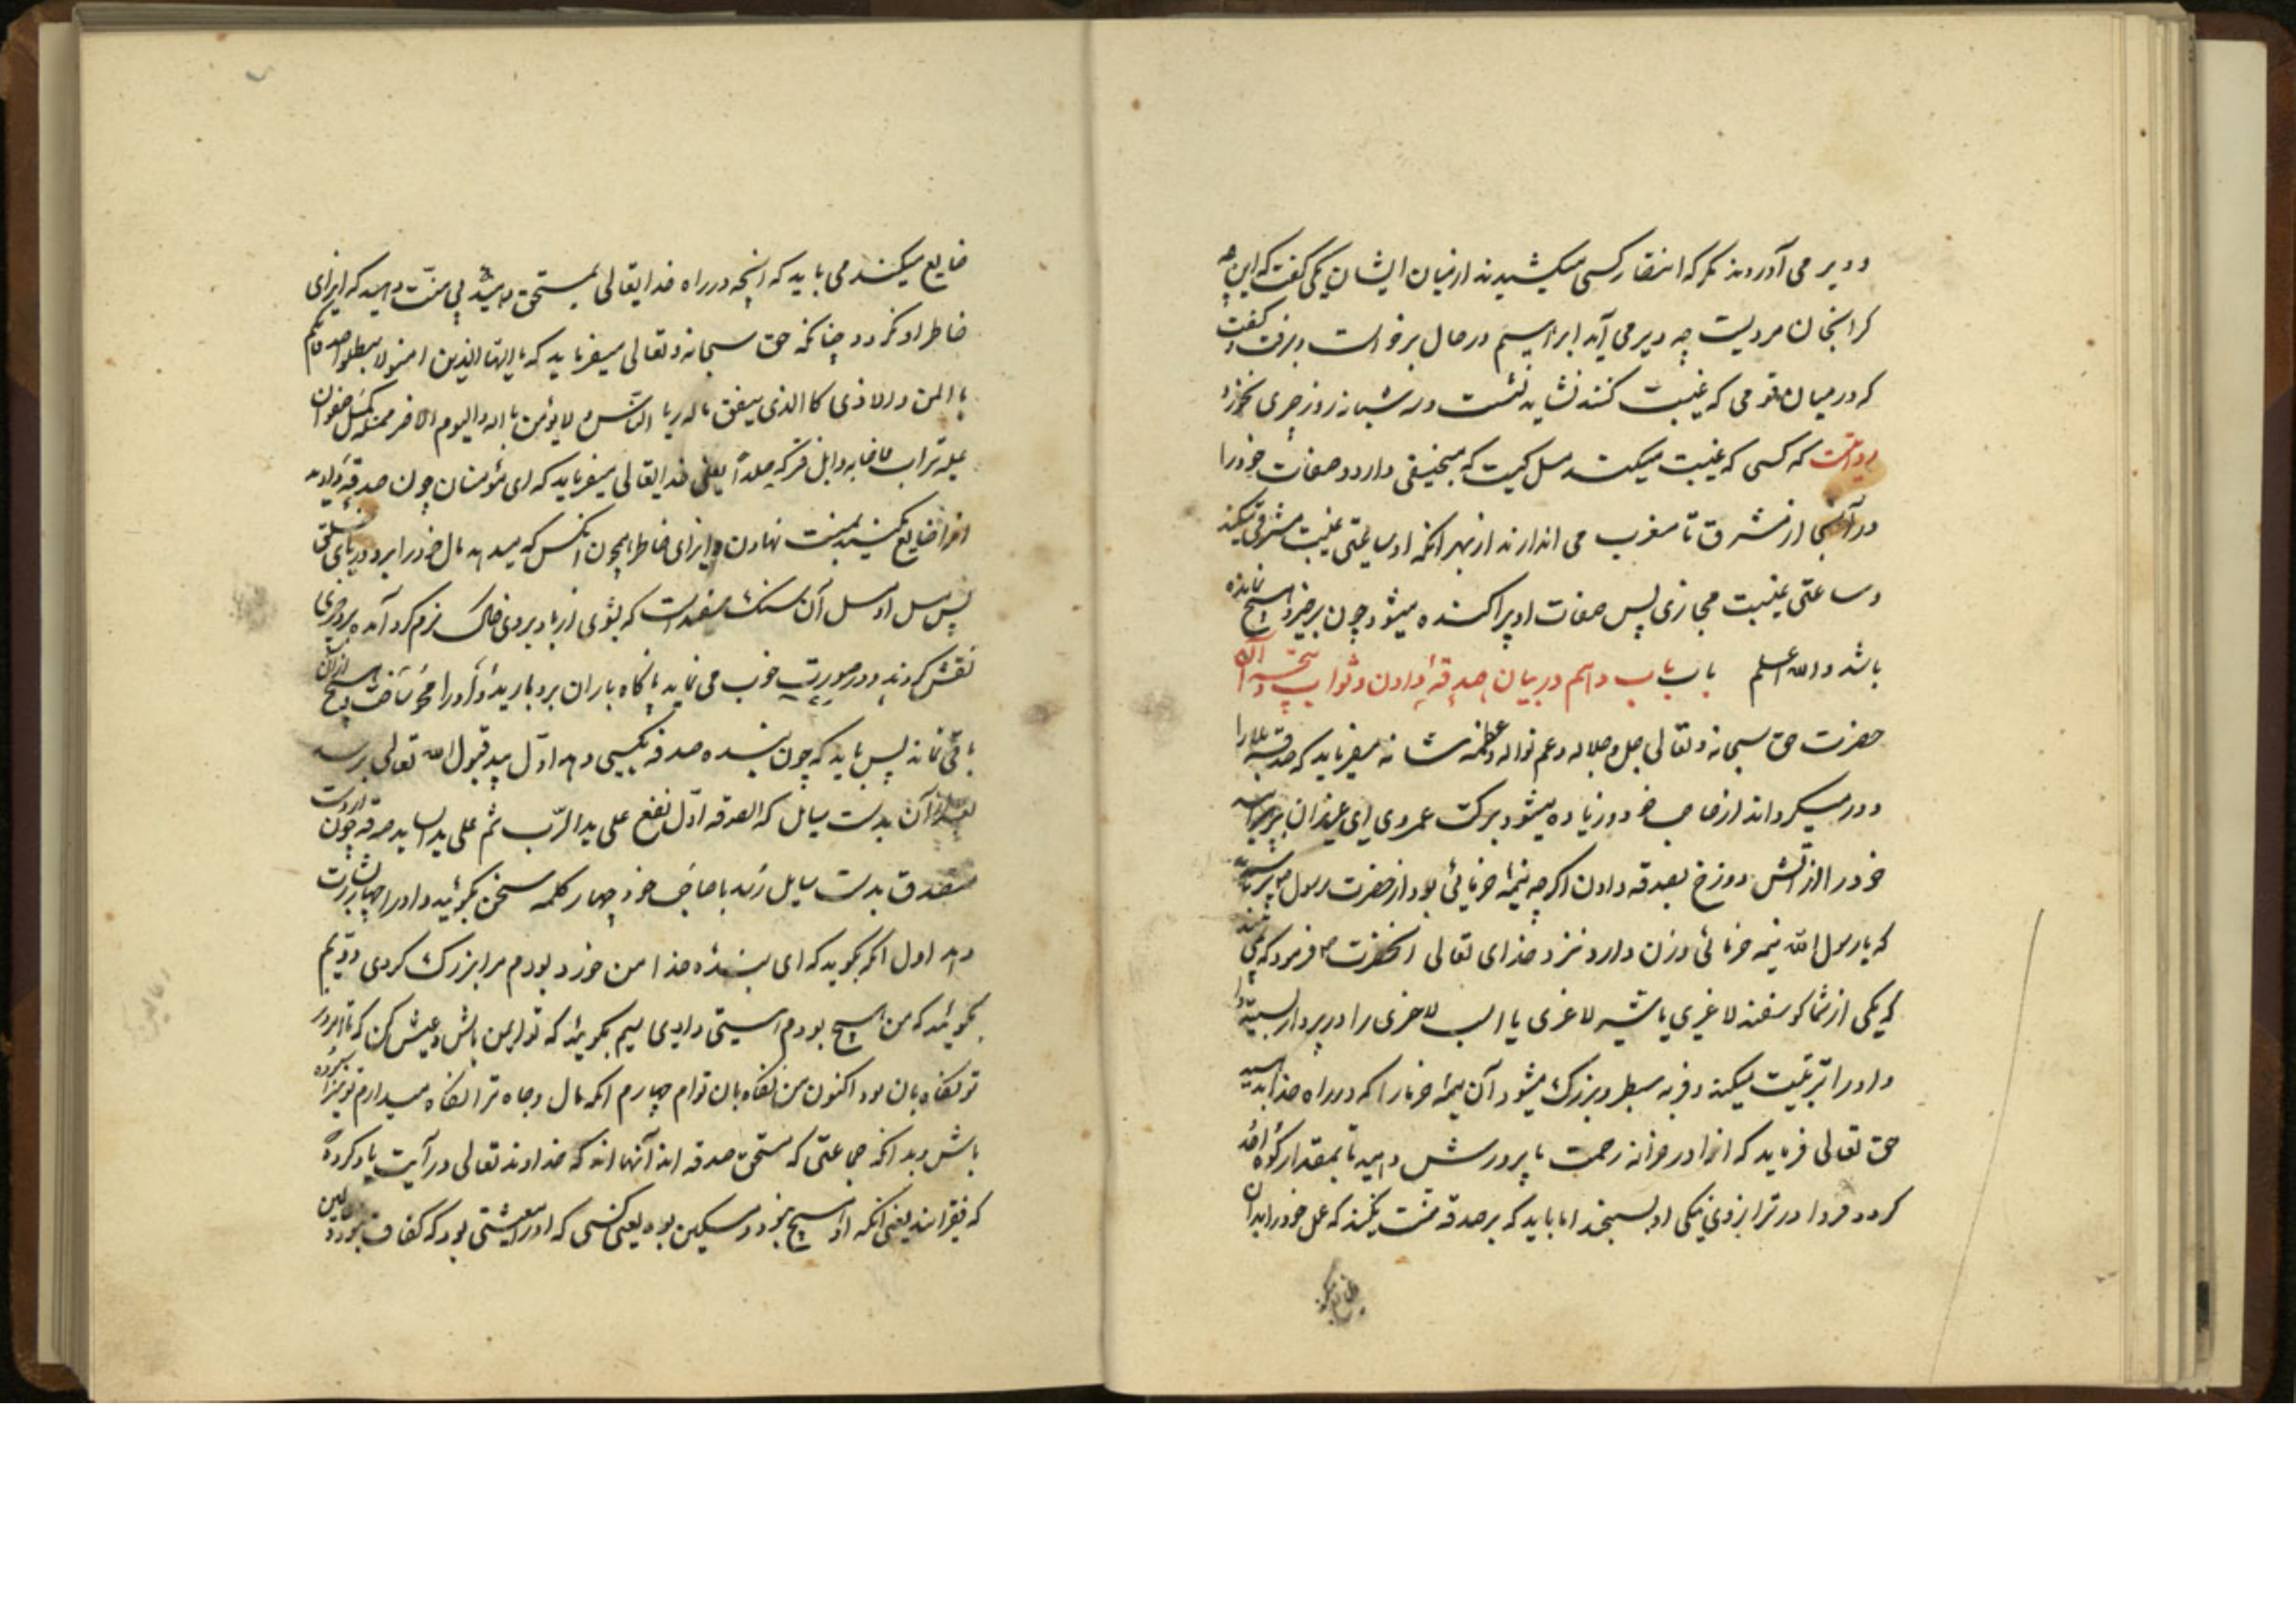 و دیر می آوردند مگر که انتظار کسی میکشیدند از میان ایشان یکی گفت که این چه
کرانجان مردیست چه دیر می آید ابراهیم در حال برخواست و برفت و گفت
که در میان قومی که غیبت کنند نشاید نشست و سه شبانه روز چیزی نخورد
روایتست که کسی که غیبت میکند مثل کیست که منجنیقی دارد و صفات خود را
در آنجا از مشرق تا مغرب می اندازند از بهر انکه او ساعتی غیبت مشرقی میکند
و ساعتی غیبت مجازی پس صفات او پراکنده میشود چون برخیزد هیچ نمانده
باشد والله اعلم باب باب دهم در بیان صدقه دادن و ثواب نتیجه آن
حضرت حق سبحانه و تعالی جل و جلاله و عم نواله و عظمه شانه میفرماید که صدقه بلا را
دور میکرداند از صاحب خود و زیاده میشود برکت عمر وی ای عزیزان بپرهیزانید
خود را از آتش دوزخ بصدقه دادن اکرچه نیمه خرمائی بود از حضرت رسول پرسیدند
که یا رسول الله نیمه خرمائی وزن دارد نزد خدای تعالی انحضرت فرمود که
که یکی از شما کوسفند لاغری یا شتر لاغری یا اسب لاغری را در پروار بسته
و او را تربیت میکند و فربه و سطبر و بزرک میشود آن نیمه خرما را که در راه خدا بدهید
حق تعالی فرماید که انرا در خزانه رحمت ما پرورش دهید تا بمقدار کوه احد
کردد فردا در ترازوی نیکی او بسنجند اما باید که بر صدقه منت نکنند که عمل خود را بدان
ضایع میکنند
ضایع میکنند می باید که انچه در راه خدایتعالی بمستحق دهید بی منت دهید که ایزای
خاطر او نکردد چنانکه حق سبحانه و تعالی میفرماید که یا ایها الذین امنو لا تبطلوا صدقاتکم
با المن و الاذی کا الذی ینفق ماله ریاء الناس و لا یؤمن بالله و الیوم الاخر فمثله کمثل صفوان
علیه تراب فاصابه وابل فترکه صلدا یعنی خدایتعالی میفرماید که ای مؤمنان چون صدقه دادید
انرا ضایع نکنید بمنت نهادن و ایزای خاطر همچون انکس که میدهد مال خود را بر روی و ریای خلق
پس مثل او مثل آن سنک سفیدست که بتوی از باد بر وی خاک نرم کرد آمده بر وی چیزی
نقش کردند و در صورت خوب می نماید ناکاه باران برو بارید و او را محو ساخت و هیچ از ان
باقی نماند پس باید که چون بنده صدقه بکسی دهد اول بید قبول الله تعالی برسد
بعد از آن بدست سایل که الصدقه اول تقع علی ید الرب ثم علی ید السایل صدقه چون از دست
متصدق بدست سایل رسد با صاحب خود چهار کلمه سخن بکوید و او را چهار بشارت
دهد اول انکه بکوید که ای بنده خدا من خورد بودم مرا بزرک کردی دویم
بکوید که من هیچ بودم هستی دادی سیم بکوید که تو ایمن باش و عیش کن که تا امروز
تو نکاه بان بود اکنون من نکاه بان توام چهارم انکه مال و جاه ترا نکاه میدارم تو نیز
باش و بدانکه جماعتی که مستحق صدقه اند آنها اند که خداوند تعالی در آیت یاد کرده
که فقرااند یعنی انکه او را هیچ نبود و مسکین بود یعنی کسی که او را معیشتی بود که کفاف نبود و